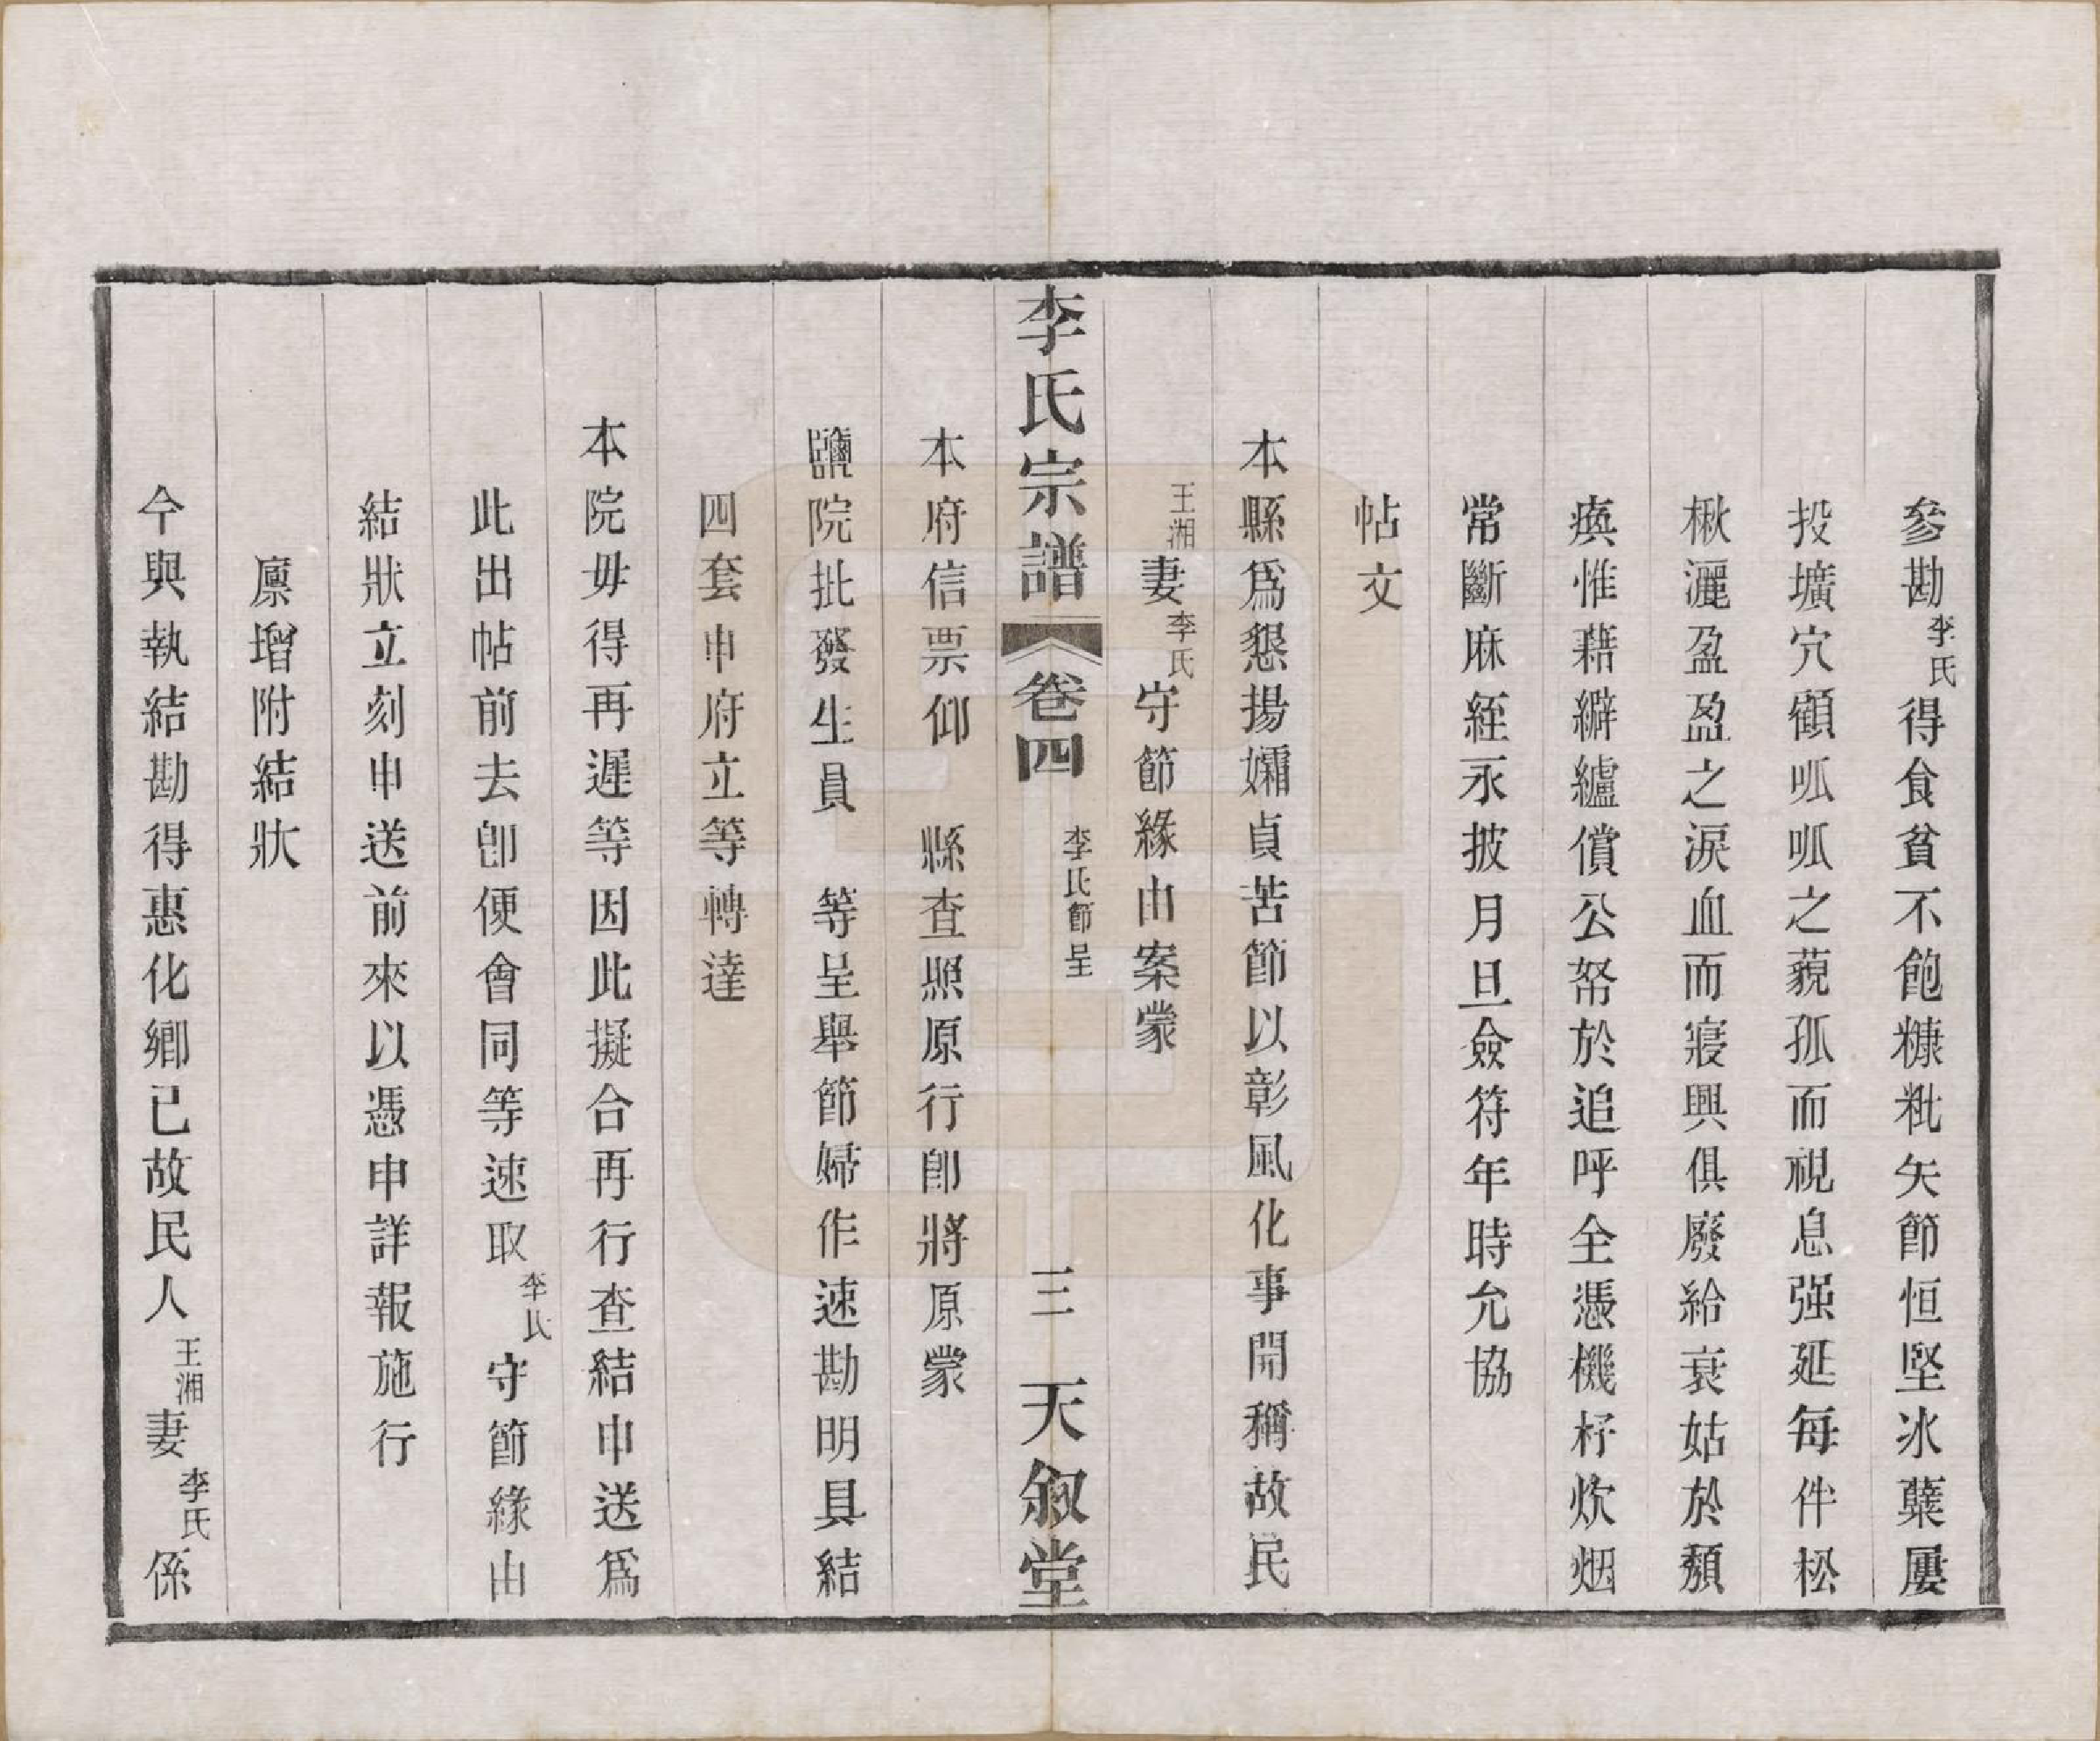 參勘李氏得食貧不飽糠粃矢節恒堅冰蘖屢
投壙穴顧呱呱之藐孤而視息强延每伴松
楸灑盈盈之淚血而寢興俱廢給衰姑於頹
瘓惟藉繲纑償公帑於追呼全憑機杼炊烟
常斷麻絰永披月旦僉符年時允協
帖文
本縣爲懇揚孀貞苦節以彰風化事開稱故民
王湘妻李氏守節緣由案蒙
李氏宗譜 卷四 李氏節呈 三 天叙堂
本府信票仰 縣查照原行卽將原蒙
鹽院批發生員 等呈舉節婦作速勘明具結
四套申府立等轉達
本院毋得再遲等因此擬合再行查結申送爲
此出帖前去卽便會同等速取李氏守節緣由
結狀立刻申送前來以憑申詳報施行
廩增附結狀
今與執結勘得惠化鄉已故民人王湘妻李氏係